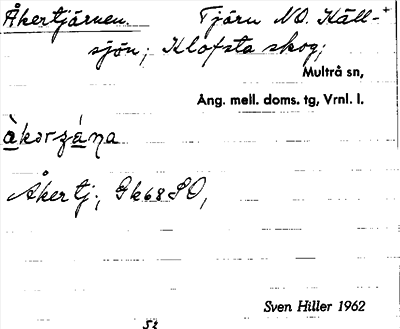 Åkertjärnen. Tjärn NO. Käll-+
sjön; Klofsta skog;
Multrå sn,
Ang. mell. doms. tg, Vrnl. l.
àkərzána
Åkertj., Gk68SO,
Sven Hiller 1962
52